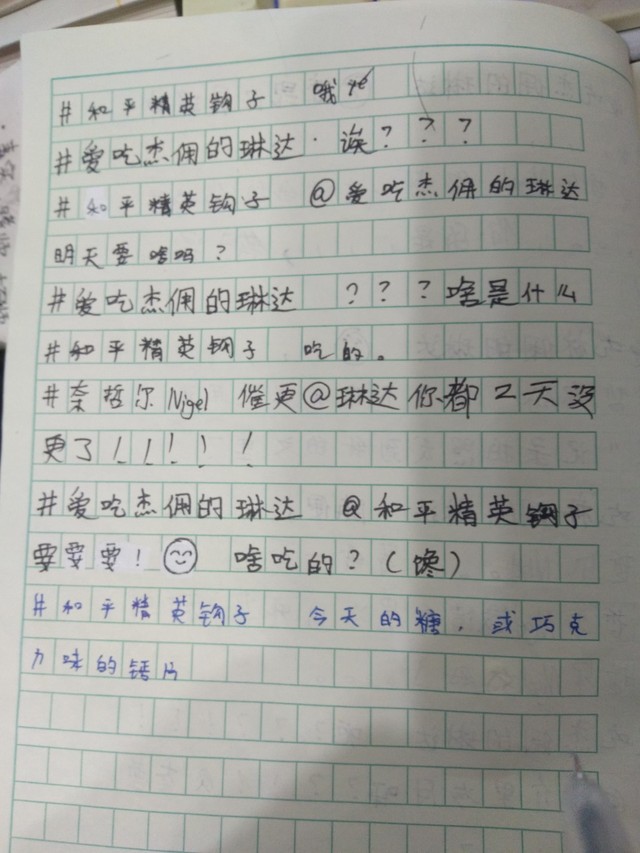 #和平精英钩子 哦
#爱吃杰佣的琳达·诶???
#和平精英钩子 @爱吃杰佣的琳达
明天要啥吗?
#爱吃杰佣的琳达 ???啥是什么
#和平精英钩子 吃的。
#奈哲尔Nigel 催更@琳达你都2天没
更了!!!!!
#爱吃杰佣的琳达 @和平精英钩子
要要要! 啥吃的?(馋)
#和平精英钩子 今天的糖,或巧克
力味的钙片